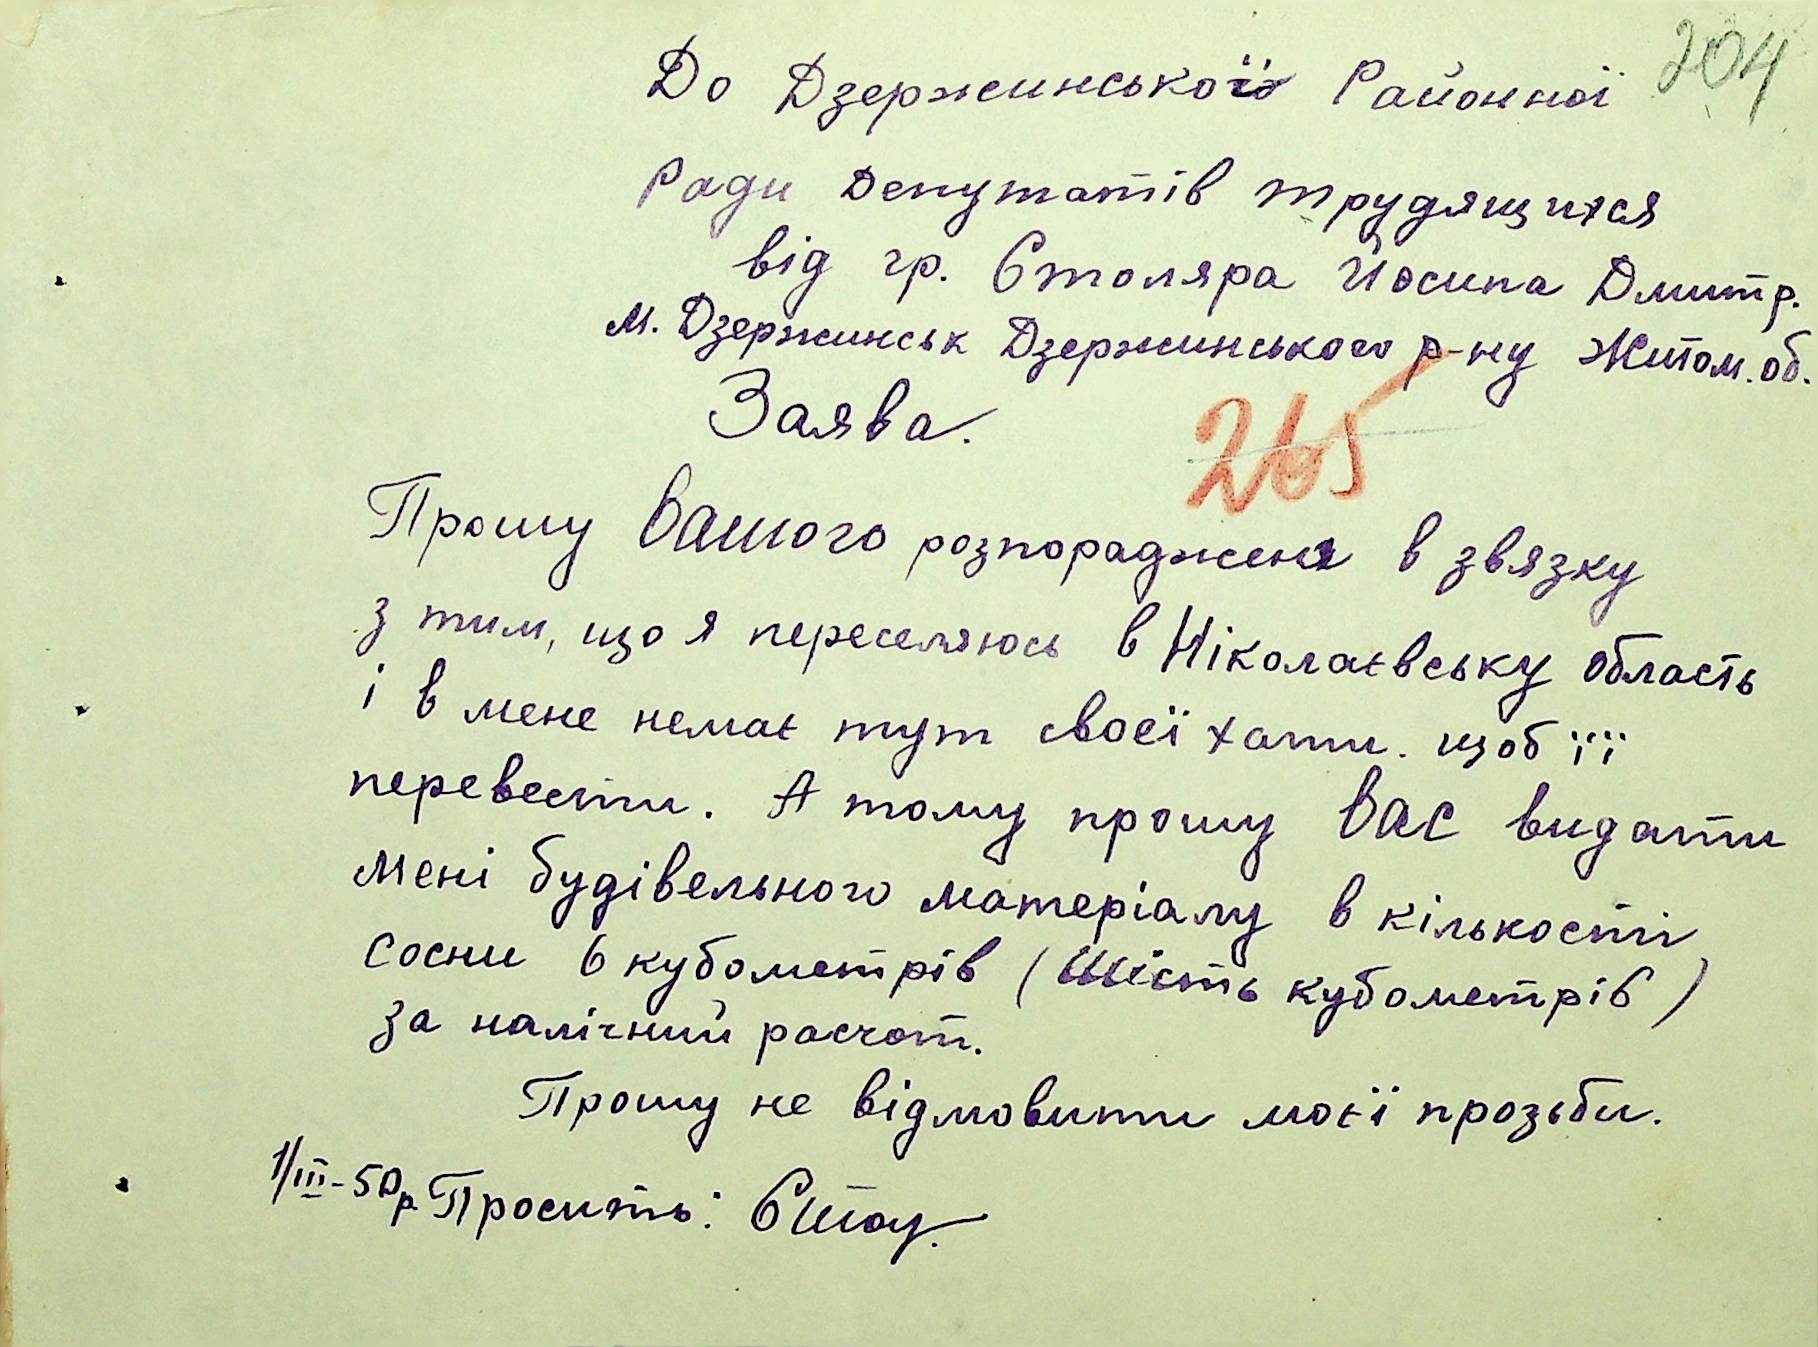 204
До Дзержинської Районної
Ради Депутатів трудящихся
від гр. Столяра Йосипа Дмитр.
м. Дзержинськ Дзержинського р-ну Житом. об.
Заява.
265
Прошу Вашого розпораджена в звязку
з тим, що я переселяюсь в Ніколаєвську область
і в мене немає тут своєї хати. щоб її
перевезти. А тому прошу Вас видати
мені будівельного матеріалу в кількості
сосни 6 кубометрів (Шість кубометрів)
за налічний расчот.
Прошу не відмовити моєї прозьби.
1/III-50р. Просить: